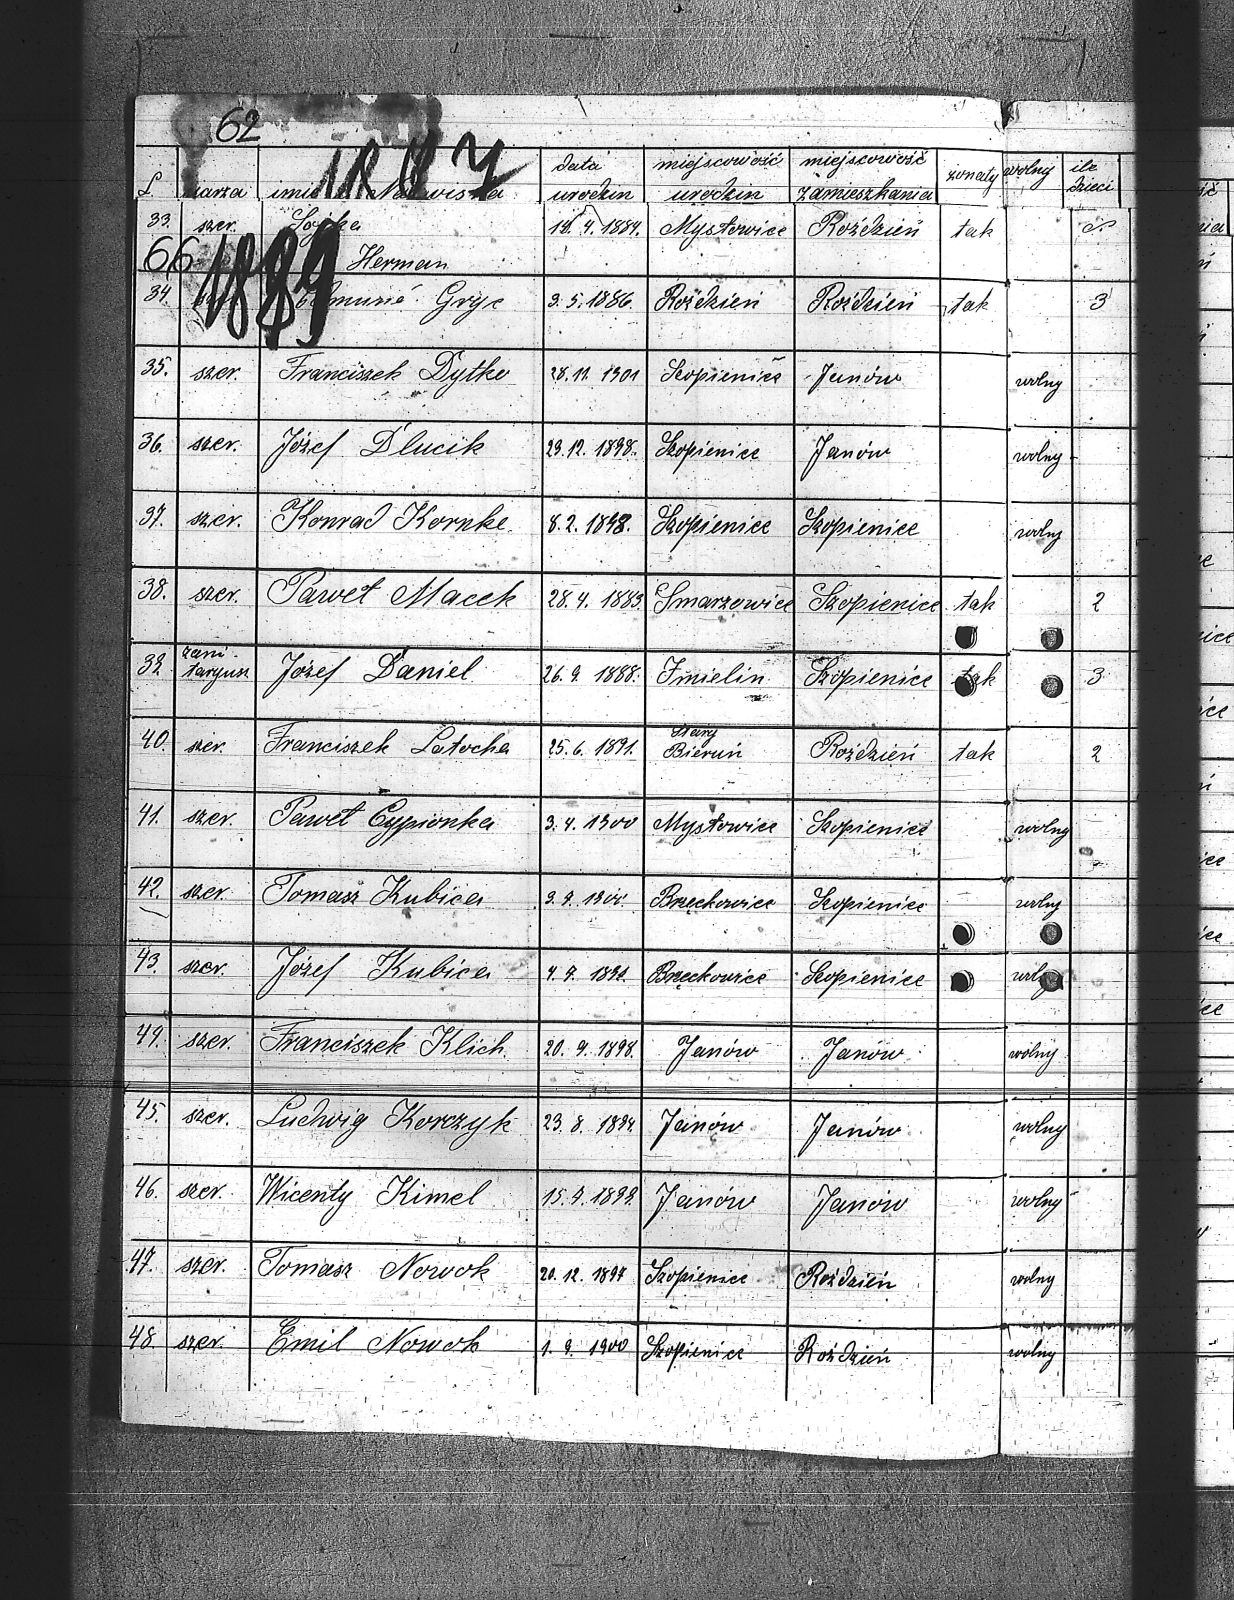 62
1887
data miejscowość miejscowość
L. szarża imię i Nazwiska urodzin urodzin zamieszkania żonaty wolny ile dzieci
33. szer. Sojka 4. 1884. Mysłowice Roździeń tak
66 1889 Herman
34. Gryc 3. 5. 1886. Roździeń Roździeń tak 3
35. szer. Franciszek Dytko 28. 11. 1901 Szopienice Janów wolny
36. szer. Józef Dlucik 29. 12. 1898. Szopienice Janów wolny
37. szer. Konrad Kornke 8. 2. 1898. Szopienice Szopienice wolny
38. szer. Paweł Macek 28. 4. 1883. Smarzowice Szopienice tak 2
39. Józef Daniel 26. 9. 1888. Imielin Szopienice tak 3
40. szer. Franciszek Latocha 25. 6. 1891. Stary Bieruń Roździeń tak 2
41. szer. Paweł Cypionka 3. 4. 1900 Mysłowice Szopienice wolny
42. szer. Tomasz Kubica 3. 9. 1900 Brzęckowice Szopienice wolny
43. szer. Józef Kubica 4. 9. Brzęckowice Szopienice wolny
44. szer. Franciszek Klich. 20. 9. 1898. Janów Janów wolny
45. szer. Ludwig Korczyk 23. 8. 1894 Janów Janów wolny
46. szer. Wicenty Kimel 15. 9. 1899. Janów Janów wolny
47. szer. Tomasz Nowok 20. 12. 1897 Szopienice Roździeń wolny
48. szer. Emil Nowok 1. 9. 1900 Szopienice Roździeń wolny